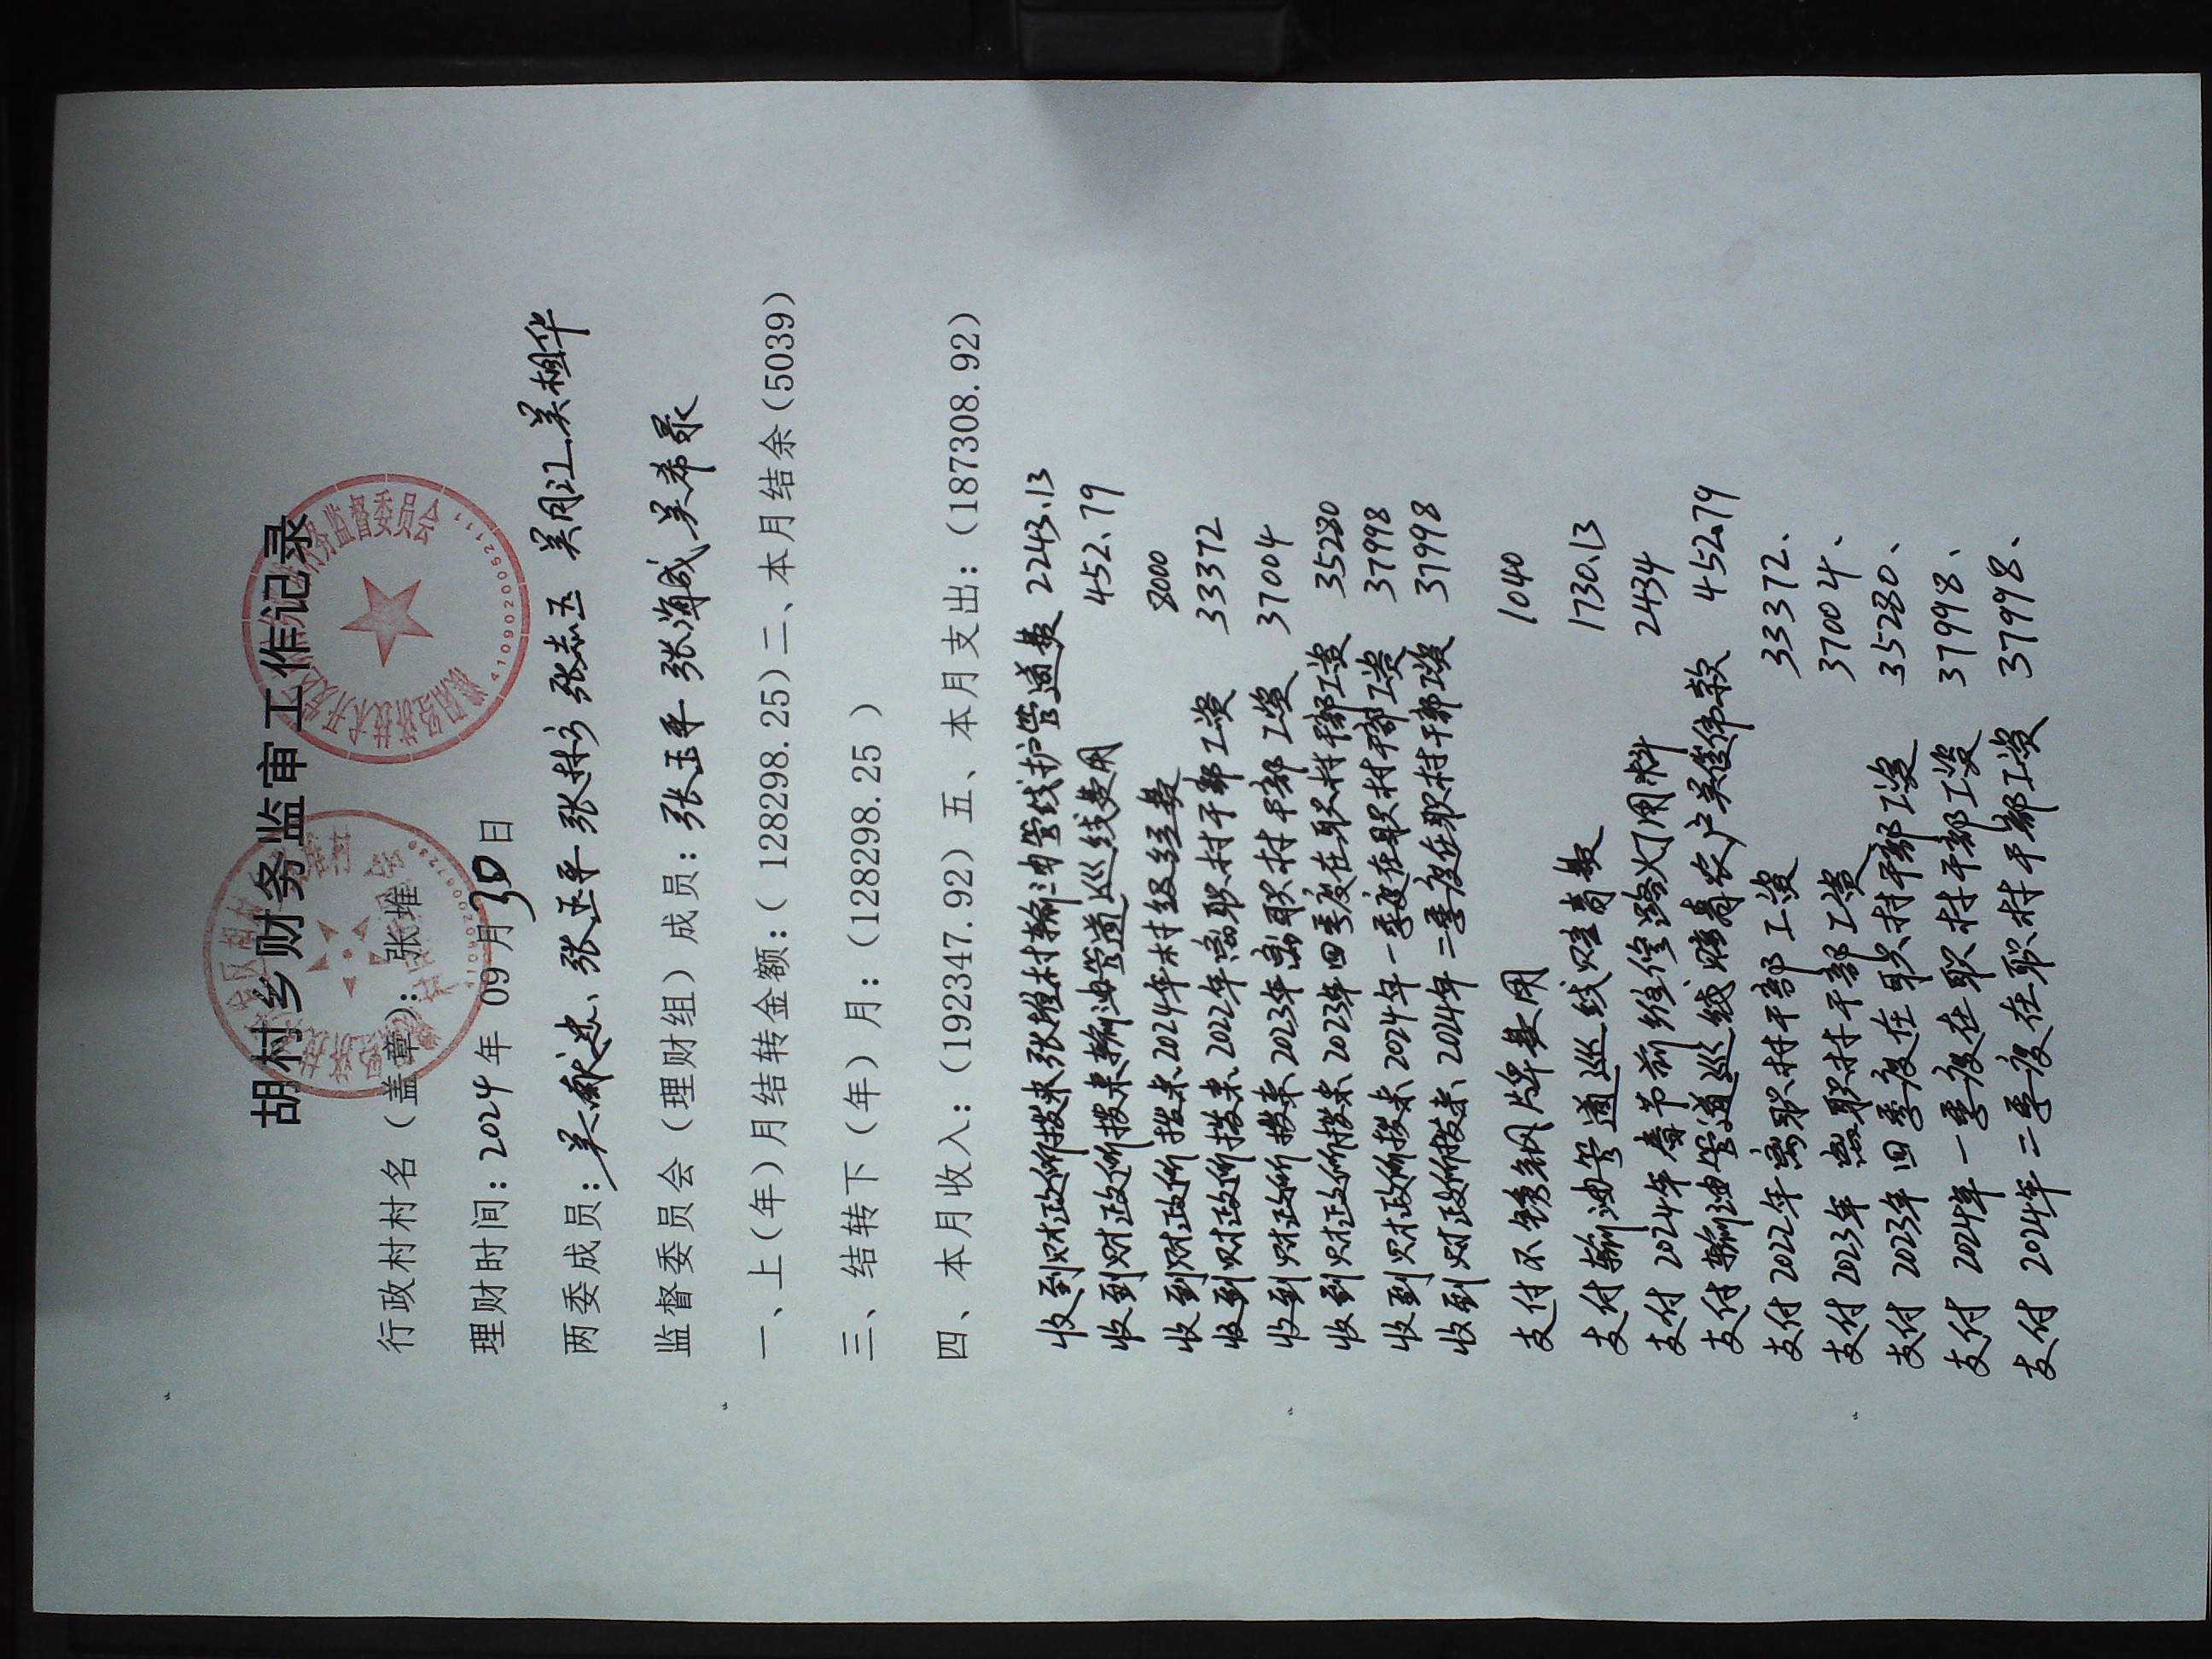 胡村乡财务监审工作记录
行政村村名（盖章）：张堆
理财时间：2024年 09月30日
两委成员：吴献忠、张玉平 张林方 张志玉 吴月江 吴相华
监督委员会（理财组）成员：张玉平 张海成 吴希录
一、上（年）月结转金额：（128298.25）二、本月结余（5039）
三、结转下（年）月：（128298.25）
四、本月收入：（192347.92）五、本月支出：（187308.92）
收到财政所拨来张堆村输油管线护管道费 2243.13
收到财政所拨来输油管道巡线费用 452.79
收到财政所拨来2024年村级经费 8000
收到财政所拨来2022年离职村干部工资 33372
收到财政所拨来2023年离职村干部工资 37004
收到财政所拨来2023年四季度在职村干部工资 35280
收到财政所拨来2024年一季度在职村干部工资 37998
收到财政所拨来2024年二季度在职村干部工资 37998
支付不锈钢牌费用 1040
支付输油管道巡线赔青费 1730.13
支付2024年春节前维修路灯用料 2434
支付输油管道巡线赔青农户吴俊伟款 452.79
支付2022年离职村干部工资 33372、
支付2023年离职村干部工资 37004、
支付2023年四季度在职村干部工资 35280、
支付2024年一季度在职村干部工资 37998、
支付2024年二季度在职村干部工资 37998、
务监督委员会
濮阳经济技术开发区
4109020052111